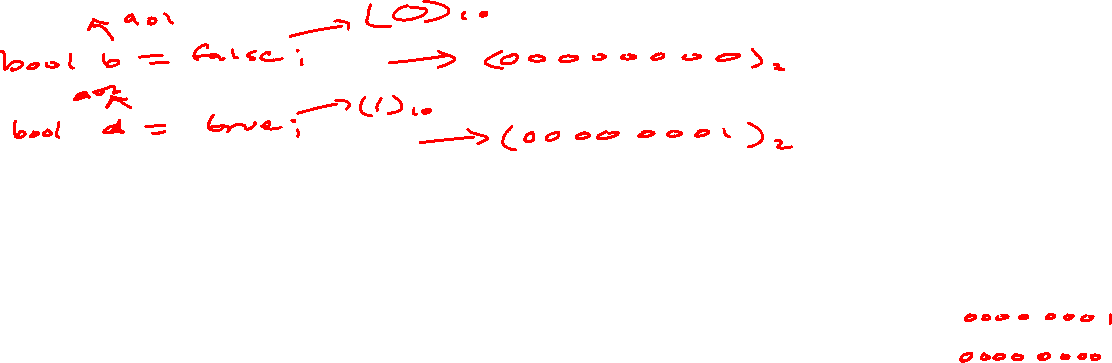 a01 (0)10
bool b = false; → (00000000)2
a02
bool d = true; → (1)10
→ (00000001)2
0000 0001
0000 0000